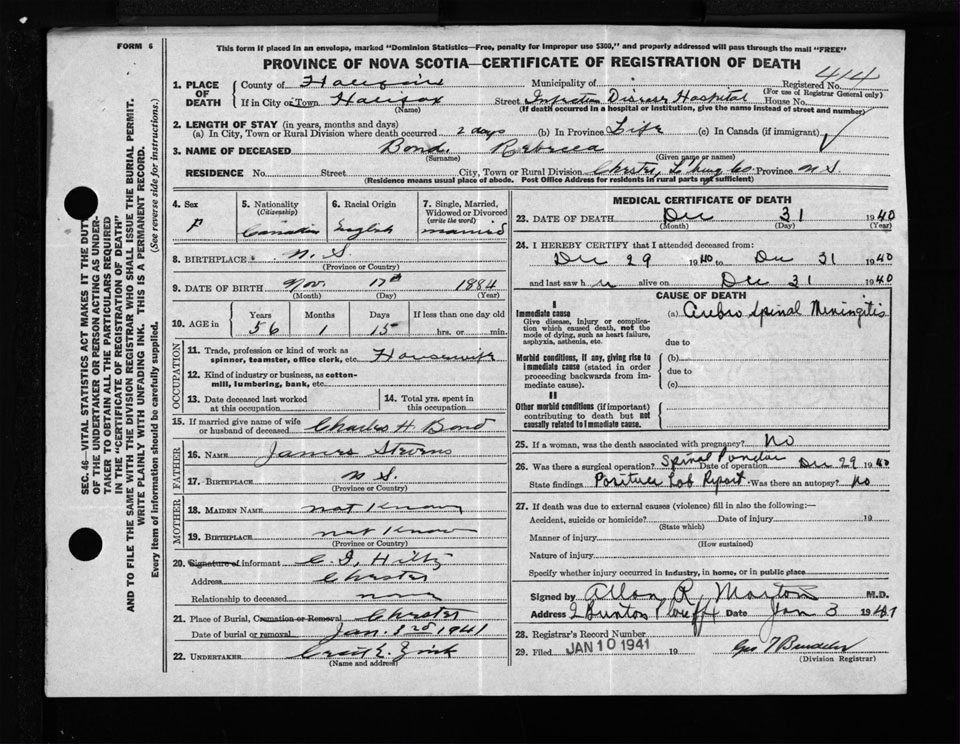 FORM 6
This form if placed in an envelope, marked "Dominion Statistics—Free, penalty for improper use $300," and properly addressed will pass through the mail "FREE"
PROVINCE OF NOVA SCOTIA—CERTIFICATE OF REGISTRATION OF DEATH
414
1. PLACE OF DEATH County of Halifax Municipality of Registered No.
(For use of Registrar General only)
If in City or Town Halifax Street Infectious Disease Hospital House No.
(If death occurred in a hospital or institution, give the name instead of street and number)
2. LENGTH OF STAY (in years, months and days)
(a) In City, Town or Rural Division where death occurred 2 days (b) In Province Life (c) In Canada (if immigrant)
3. NAME OF DECEASED Bond Rebecca
(Surname) (Given name or names)
RESIDENCE No. Street City, Town or Rural Division Chester, L'burg Co Province N.S.
(Residence means usual place of abode. Post Office Address for residents in rural parts not sufficient)
4. Sex F
5. Nationality (Citizenship) Canadian
6. Racial Origin English
7. Single, Married, Widowed or Divorced (write the word) married
8. BIRTHPLACE N. S.
(Province or Country)
9. DATE OF BIRTH Nov. 17th 1884
(Month) (Day) (Year)
10. AGE in Years 56 Months 1 Days 15 If less than one day old hrs. or min.
OCCUPATION
11. Trade, profession or kind of work as spinner, teamster, office clerk, etc. Housewife
12. Kind of industry or business, as cotton-mill, lumbering, bank, etc.
13. Date deceased last worked at this occupation
14. Total yrs. spent in this occupation
15. If married give name of wife or husband of deceased Charles H. Bond
FATHER
16. NAME James Stevens
17. BIRTHPLACE N S.
(Province or Country)
MOTHER
18. MAIDEN NAME not Known
19. BIRTHPLACE not Know
(Province or Country)
20. Signature of informant C. I. Hiltz
Address Chester
Relationship to deceased
21. Place of Burial, Cremation or Removal Chester
Date of burial or removal Jan. 1941
22. UNDERTAKER E. Zink
(Name and address)
MEDICAL CERTIFICATE OF DEATH
23. DATE OF DEATH Dec 31 1940
(Month) (Day) (Year)
24. I HEREBY CERTIFY that I attended deceased from:
Dec 29 1940 to Dec 31 1940
and last saw h er alive on Dec 31 1940
CAUSE OF DEATH
I
Immediate cause
Give disease, injury or complication which caused death, not the mode of dying, such as heart failure, asphyxia, asthenia, etc.
(a) Cerebro spinal Meningitis
due to
Morbid conditions, if any, giving rise to immediate cause (stated in order proceeding backwards from immediate cause).
(b)
due to
(c)
II
Other morbid conditions (if important) contributing to death but not causally related to immediate cause.
25. If a woman, was the death associated with pregnancy? No
26. Was there a surgical operation? Spinal Date of operation Dec 29 1940
State findings Positive Lab Report Was there an autopsy? No
27. If death was due to external causes (violence) fill in also the following:—
Accident, suicide or homicide? Date of injury 19
(State which)
Manner of injury
(How sustained)
Nature of injury
Specify whether injury occurred in industry, in home, or in public place
Signed by Allan R. Morton M.D.
Address Date Jan 3 1941
28. Registrar's Record Number
29. Filed JAN 10 1941 19
(Division Registrar)
SEC. 46—VITAL STATISTICS ACT MAKES IT THE DUTY
OF THE UNDERTAKER OR PERSON ACTING AS UNDER-
TAKER TO OBTAIN ALL THE PARTICULARS REQUIRED
IN THE "CERTIFICATE OF REGISTRATION OF DEATH"
AND TO FILE THE SAME WITH THE DIVISION REGISTRAR WHO SHALL ISSUE THE BURIAL PERMIT.
WRITE PLAINLY WITH UNFADING INK. THIS IS A PERMANENT RECORD.
Every item of information should be carefully supplied. (See reverse side for instructions.)